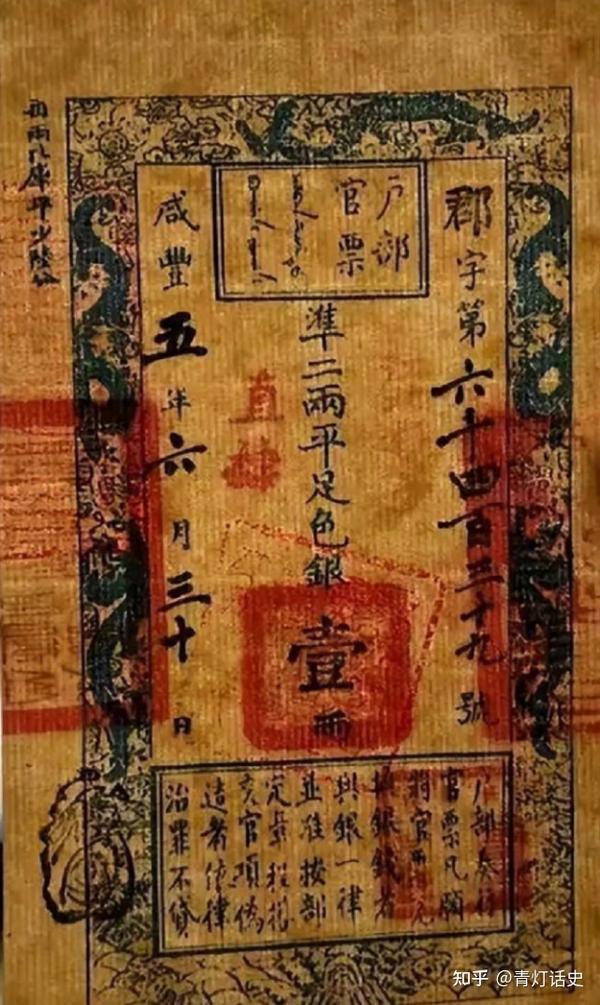 戶部
官票
郡字第六十四百三十九號
準二兩平足色銀壹兩
直隸
咸豐五年六月三十日
每兩比庫平少陸分
戶部奏行
官票凡願
將官票兌
換銀錢者
與銀一律
並准按部
定章程搭
交官項偽
造者依律
治罪不貸
知乎 @青灯话史